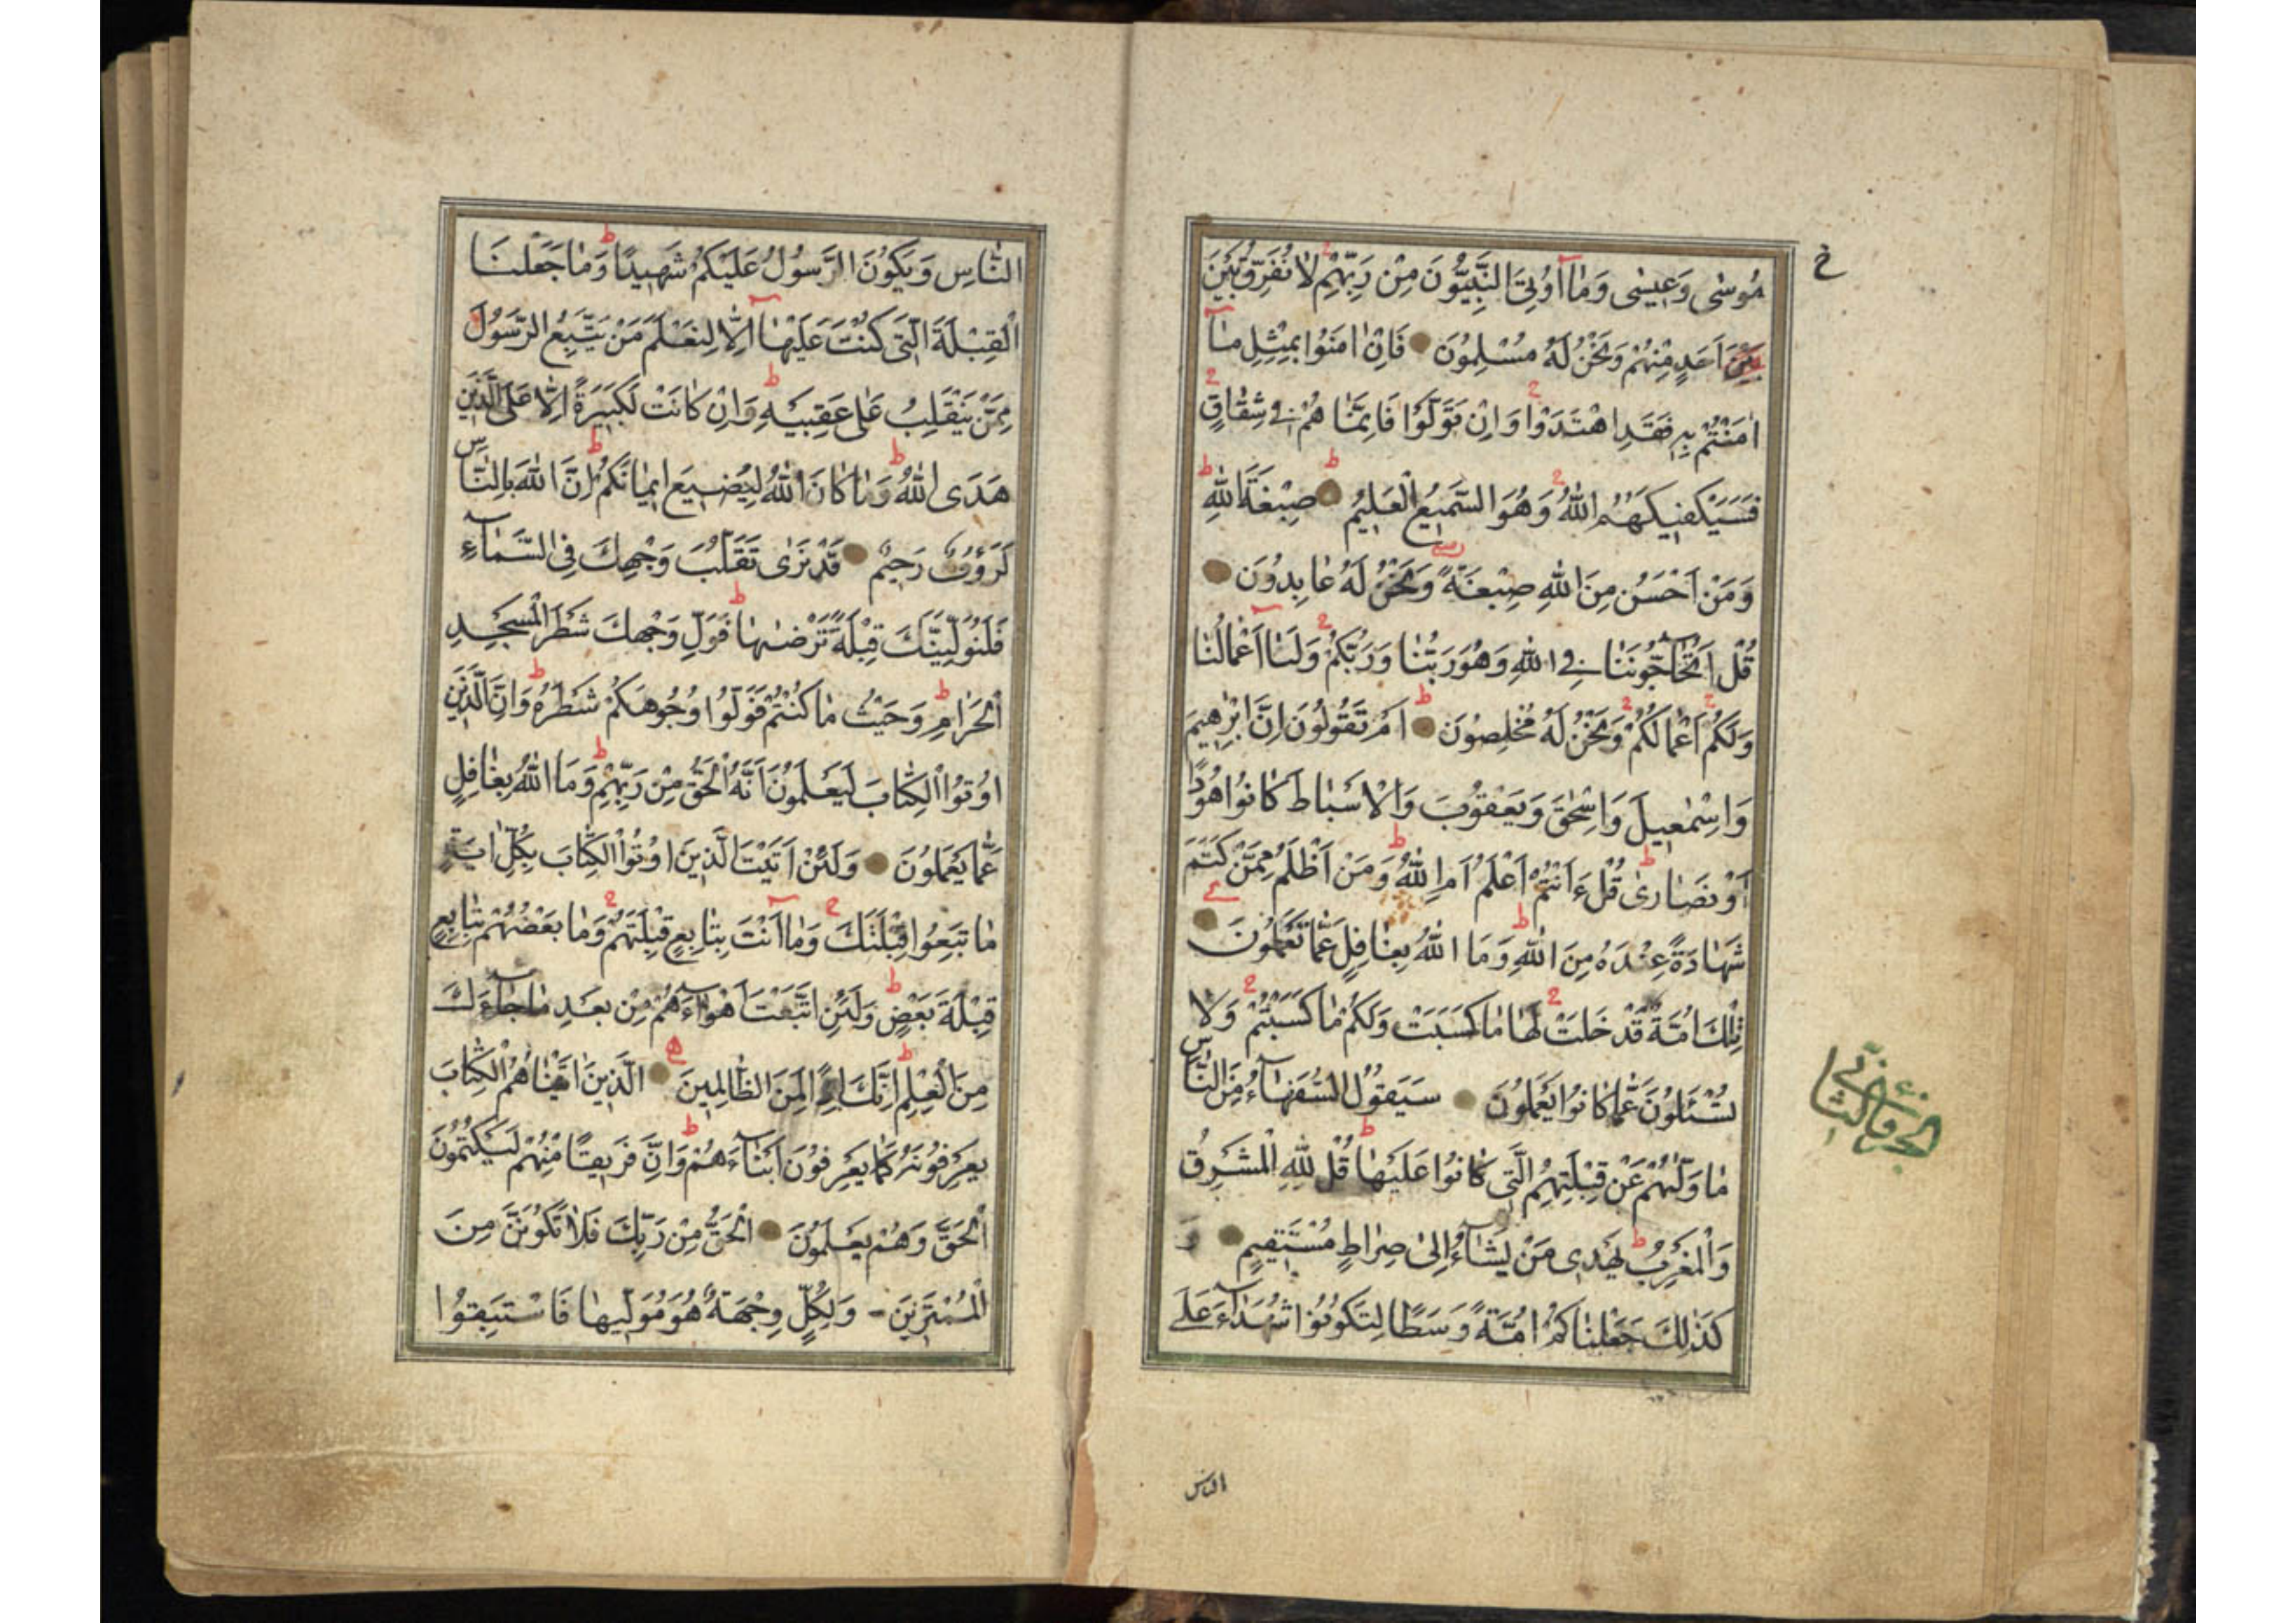 مُوسٰى وَعِيسٰى وَمَٓا اُوتِيَ النَّبِيُّونَ مِنْ رَبِّهِمْ لَا نُفَرِّقُ بَيْنَ
بَيْنَ اَحَدٍ مِنْهُمْ وَنَحْنُ لَهُ مُسْلِمُونَ فَاِنْ اٰمَنُوا بِمِثْلِ مَٓا
اٰمَنْتُمْ بِهِ فَقَدِ اهْتَدَوْا وَاِنْ تَوَلَّوْا فَاِنَّمَا هُمْ فِي شِقَاقٍ
فَسَيَكْفِيكَهُمُ اللّٰهُ وَهُوَ السَّمِيعُ الْعَلِيمُ صِبْغَةَ اللّٰهِ
وَمَنْ اَحْسَنُ مِنَ اللّٰهِ صِبْغَةً وَنَحْنُ لَهُ عَابِدُونَ
قُلْ اَتُحَٓاجُّونَنَا فِي اللّٰهِ وَهُوَ رَبُّنَا وَرَبُّكُمْ وَلَنَٓا اَعْمَالُنَا
وَلَكُمْ اَعْمَالُكُمْ وَنَحْنُ لَهُ مُخْلِصُونَ اَمْ تَقُولُونَ اِنَّ اِبْرٰهِيمَ
وَاِسْمٰعِيلَ وَاِسْحٰقَ وَيَعْقُوبَ وَالْاَسْبَاطَ كَانُوا هُودًا
اَوْ نَصَارٰى قُلْ ءَاَنْتُمْ اَعْلَمُ اَمِ اللّٰهُ وَمَنْ اَظْلَمُ مِمَّنْ كَتَمَ
شَهَادَةً عِنْدَهُ مِنَ اللّٰهِ وَمَا اللّٰهُ بِغَافِلٍ عَمَّا تَعْمَلُونَ
تِلْكَ اُمَّةٌ قَدْ خَلَتْ لَهَا مَا كَسَبَتْ وَلَكُمْ مَا كَسَبْتُمْ وَلَا
تُسْئَلُونَ عَمَّا كَانُوا يَعْمَلُونَ سَيَقُولُ السُّفَهَٓاءُ مِنَ النَّاسِ
مَا وَلّٰيهُمْ عَنْ قِبْلَتِهِمُ الَّتِي كَانُوا عَلَيْهَا قُلْ لِلّٰهِ الْمَشْرِقُ
وَالْمَغْرِبُ يَهْدِي مَنْ يَشَٓاءُ اِلٰى صِرَاطٍ مُسْتَقِيمٍ وَ
كَذٰلِكَ جَعَلْنَاكُمْ اُمَّةً وَسَطًا لِتَكُونُوا شُهَدَٓاءَ عَلَى
الجزو الثاني
الناس
النَّاسِ وَيَكُونَ الرَّسُولُ عَلَيْكُمْ شَهِيدًا وَمَا جَعَلْنَا
الْقِبْلَةَ الَّتِي كُنْتَ عَلَيْهَٓا اِلَّا لِنَعْلَمَ مَنْ يَتَّبِعُ الرَّسُولَ
مِمَّنْ يَنْقَلِبُ عَلٰى عَقِبَيْهِ وَاِنْ كَانَتْ لَكَبِيرَةً اِلَّا عَلَى الَّذِينَ
هَدَى اللّٰهُ وَمَا كَانَ اللّٰهُ لِيُضِيعَ اِيمَانَكُمْ اِنَّ اللّٰهَ بِالنَّاسِ
لَرَؤُوفٌ رَحِيمٌ قَدْ نَرٰى تَقَلُّبَ وَجْهِكَ فِي السَّمَٓاءِ
فَلَنُوَلِّيَنَّكَ قِبْلَةً تَرْضٰيهَا فَوَلِّ وَجْهَكَ شَطْرَ الْمَسْجِدِ
الْحَرَامِ وَحَيْثُ مَا كُنْتُمْ فَوَلُّوا وُجُوهَكُمْ شَطْرَهُ وَاِنَّ الَّذِينَ
اُوتُوا الْكِتَابَ لَيَعْلَمُونَ اَنَّهُ الْحَقُّ مِنْ رَبِّهِمْ وَمَا اللّٰهُ بِغَافِلٍ
عَمَّا يَعْمَلُونَ وَلَئِنْ اَتَيْتَ الَّذِينَ اُوتُوا الْكِتَابَ بِكُلِّ اٰيَةٍ
مَا تَبِعُوا قِبْلَتَكَ وَمَٓا اَنْتَ بِتَابِعٍ قِبْلَتَهُمْ وَمَا بَعْضُهُمْ بِتَابِعٍ
قِبْلَةَ بَعْضٍ وَلَئِنِ اتَّبَعْتَ اَهْوَٓاءَهُمْ مِنْ بَعْدِ مَا جَٓاءَكَ
مِنَ الْعِلْمِ اِنَّكَ اِذًا لَمِنَ الظَّالِمِينَ الَّذِينَ اٰتَيْنَاهُمُ الْكِتَابَ
يَعْرِفُونَهُ كَمَا يَعْرِفُونَ اَبْنَٓاءَهُمْ وَاِنَّ فَرِيقًا مِنْهُمْ لَيَكْتُمُونَ
الْحَقَّ وَهُمْ يَعْلَمُونَ اَلْحَقُّ مِنْ رَبِّكَ فَلَا تَكُونَنَّ مِنَ
الْمُمْتَرِينَ وَلِكُلٍّ وِجْهَةٌ هُوَ مُوَلِّيهَا فَاسْتَبِقُوا